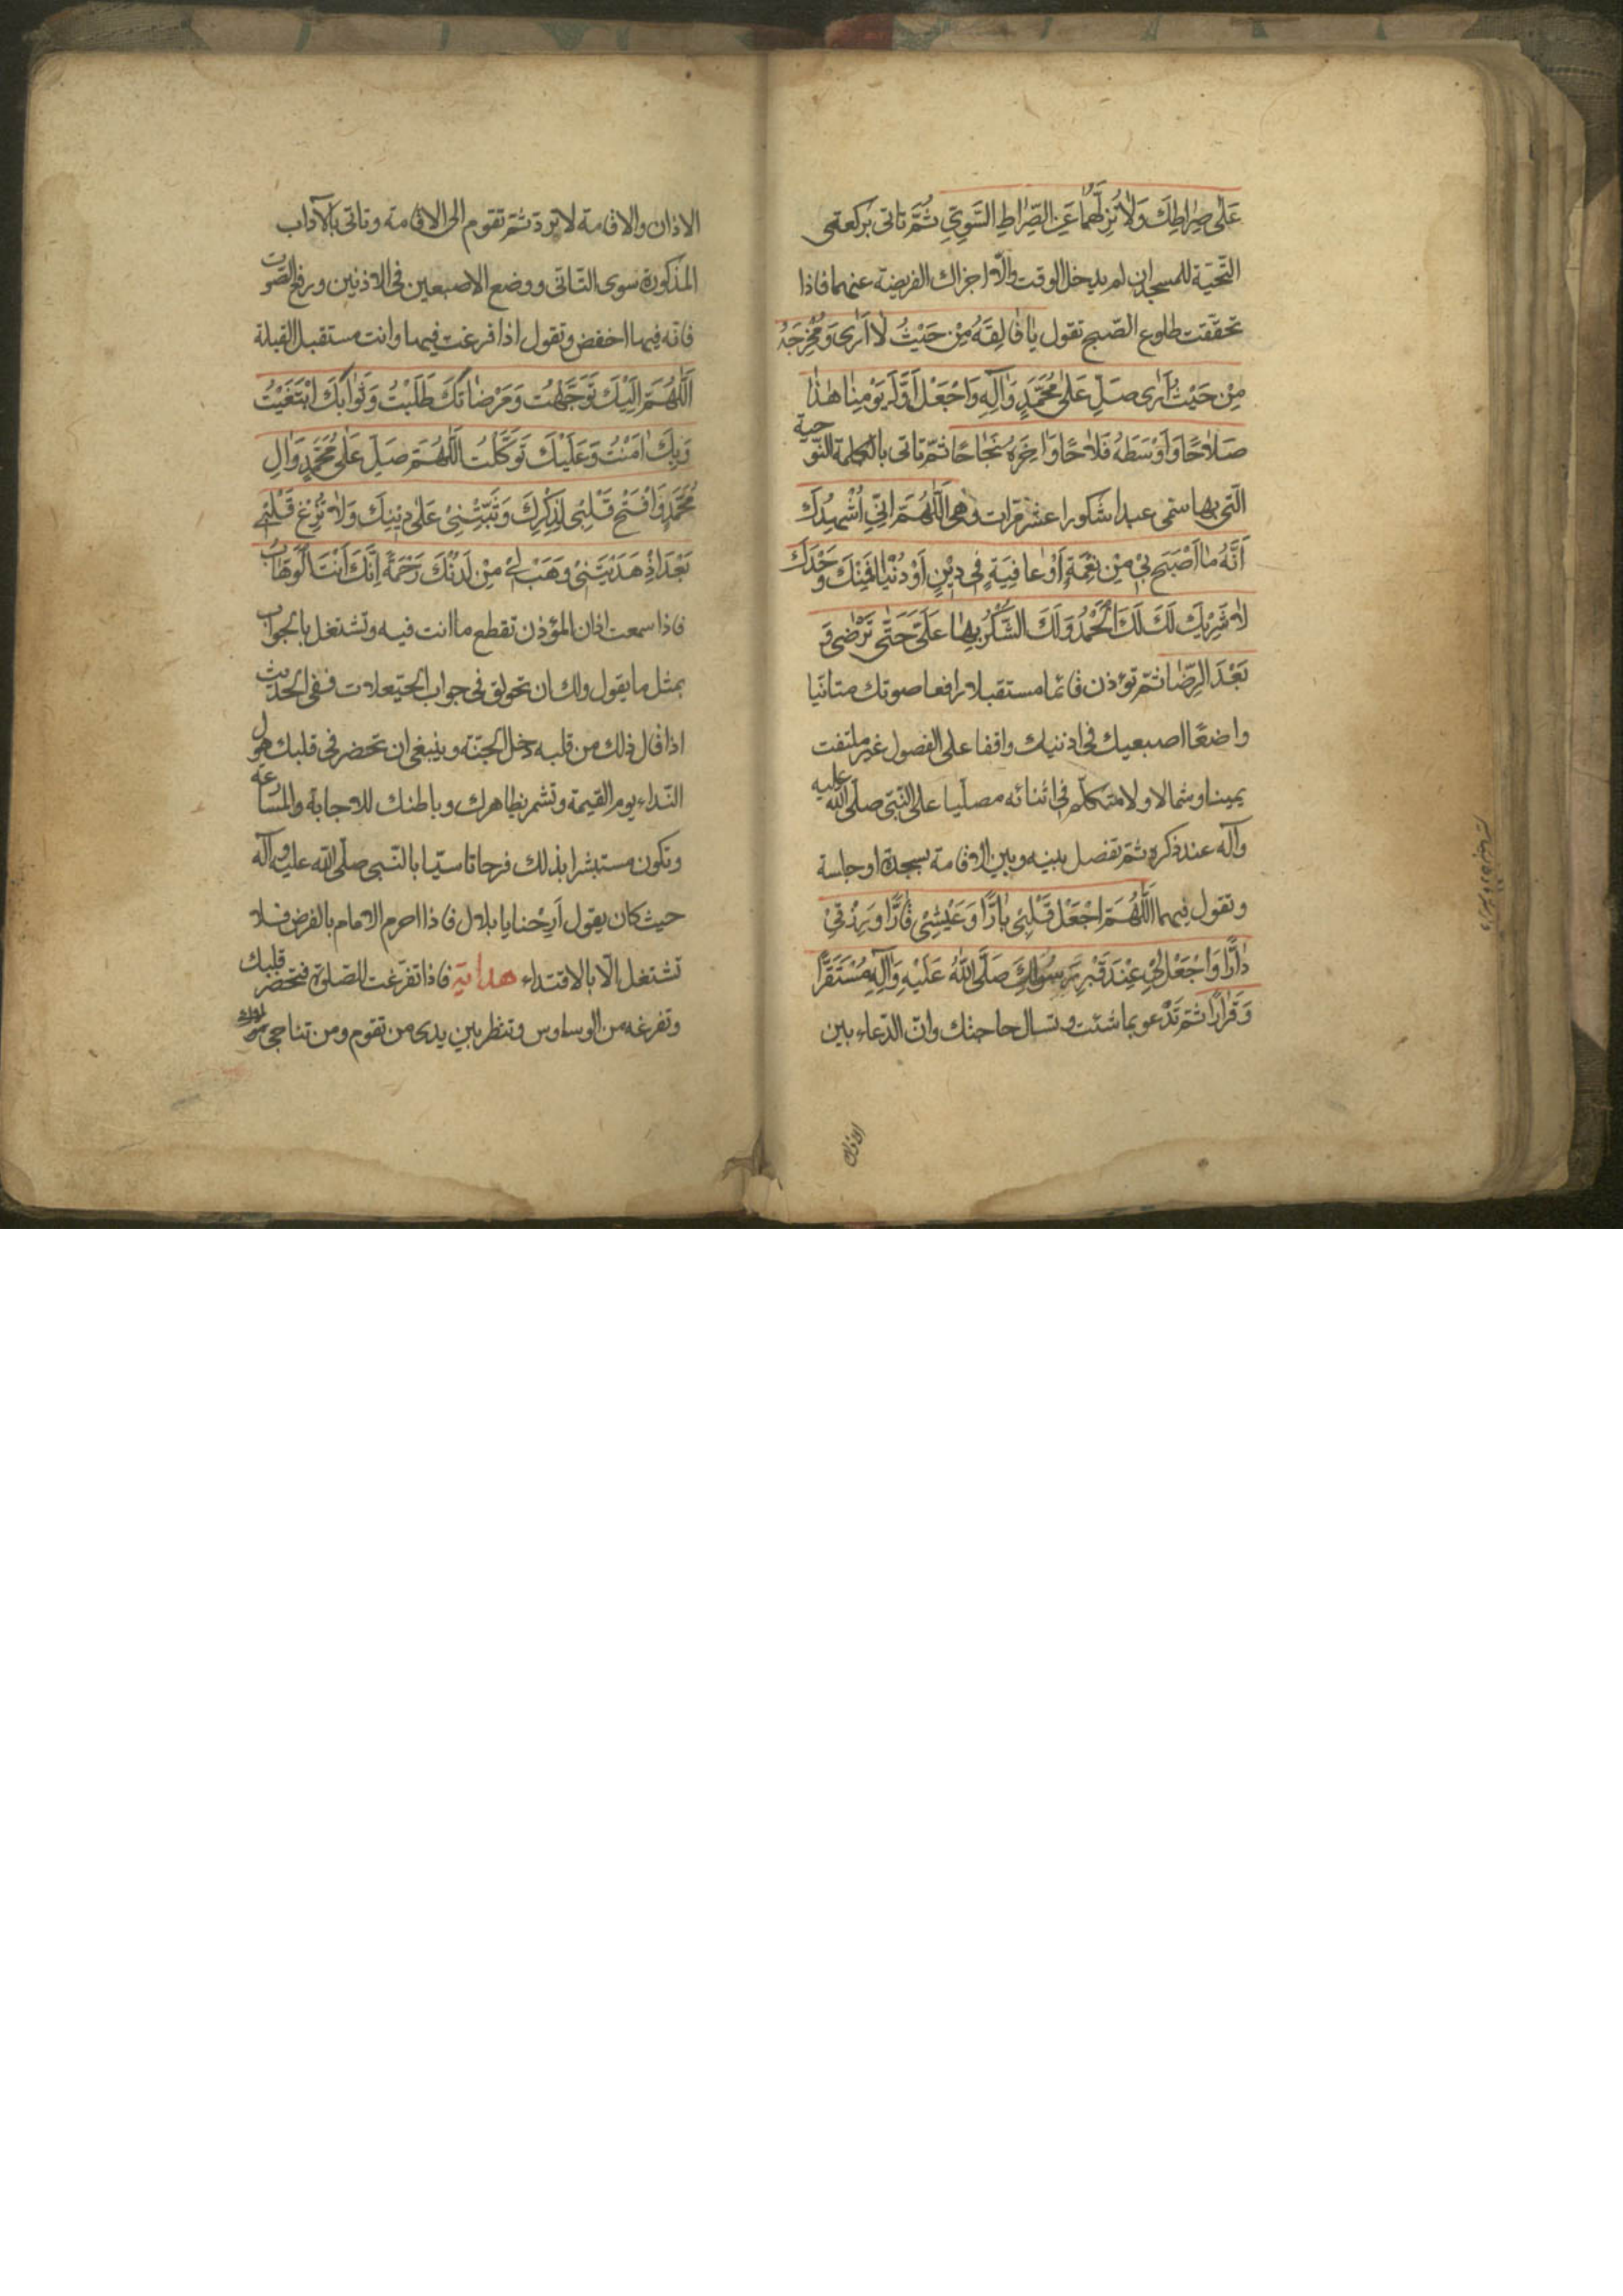 عَلٰى صِرٰاطِكَ وَلٰا تُزِلَّهُمٰا عَنِ الصِّرٰاطِ السَّوِيِّ ثُمَّ تاتى بركعتى
التحيّة للمسجد ان لم يدخل الوقت والّا اجزاك الفريضة عنهما فاذا
تحقّقت طلوع الصّبح تقول يٰا فٰالِقَهُ مِنْ حَيْثُ لٰا اَرٰى وَمُخْرِجَهُ
مِنْ حَيْثُ اَرٰى صَلِّ عَلٰى مُحَمَّدٍ وَاٰلِهِ وَاجْعَلْ اَوَّلَ يَوْمِنٰا هٰذٰا
صَلٰاحًا وَاَوْسَطَهُ فَلٰاحًا وَاٰخِرَهُ نَجٰاحًا ثمّ تاتى بالكلمة النّوحية
الّتى بها سمّى عبدا شكورا عشر مرّات وهى اَللّٰهُمَّ اِنّى اُشْهِدُكَ
اَنَّهُ مٰا اَصْبَحَ بى مِنْ نِعْمَةٍ اَوْ عٰافِيَةٍ فى دينٍ اَوْ دُنْيٰا فَمِنْكَ وَحْدَكَ
لٰا شَريكَ لَكَ لَكَ الْحَمْدُ وَلَكَ الشُّكْرُ بِهٰا عَلَىَّ حَتّٰى تَرْضٰى وَ
بَعْدَ الرِّضٰا ثمّ تؤذن قائما مستقبلا رافعا صوتك متانّيا
واضعًا اصبعيك فى اذنيك واقفا على الفصول غير ملتفت
يمينا وشمالا ولا متكلّم فى اثنائه مصلّيا على النّبىّ صلّى اللّه عليه
وآله عند ذكره ثمّ تفصل بينه وبين الاقامة بسجدة او جلسة
وتقول فيهما اَللّٰهُمَّ اجْعَلْ قَلْبى بٰارًّا وَعَيْشى قٰارًّا وَرِزْقى
دٰارًّا وَاجْعَلْ لى عِنْدَ قَبْرِ رَسُولِكَ صَلَّى اللّٰهُ عَلَيْهِ وَاٰلِهِ مُسْتَقَرًّا
وَقَرٰارًا ثمّ تدعو بما شئت وتسال حاجتك وانّ الدّعاء بين
الاذان
الاذان والاقامة لا يردّ ثمّ تقوم الى الاقامة وتاتى بالآداب
المذكورة سوى التّانّى ووضع الاصبعين فى الاذنين ورفع الصّوت
فانّه فيها اخفض وتقول اذا فرغت فيهما وانت مستقبل القبلة
اَللّٰهُمَّ اِلَيْكَ تَوَجَّهْتُ وَمَرْضٰاتَكَ طَلَبْتُ وَثَوٰابَكَ ابْتَغَيْتُ
وَبِكَ اٰمَنْتُ وَعَلَيْكَ تَوَكَّلْتُ اَللّٰهُمَّ صَلِّ عَلٰى مُحَمَّدٍ وَاٰلِ
مُحَمَّدٍ وَافْتَحْ قَلْبى لِذِكْرِكَ وَثَبِّتْنى عَلٰى دينِكَ وَلٰا تُزِغْ قَلْبى
بَعْدَ اِذْ هَدَيْتَنى وَهَبْ لى مِنْ لَدُنْكَ رَحْمَةً اِنَّكَ اَنْتَ الْوَهّٰابُ
فاذا سمعت اذان المؤذن تقطع ما انت فيه وتشتغل بالجواب
بمثل ما يقول ولك ان تحولق فى جواب الحيّعلات ففى الحديث
اذا قال ذلك من قلبه دخل الجنّة وينبغى ان تحضر فى قلبك هول
النّداء يوم القيمة وتشمر بظاهرك وباطنك للاجابة والمسارعة
وتكون مستبشرا بذلك فرحا تاسيّا بالنّبى صلّى اللّه عليه وآله
حيث كان يقول اَرِحْنا يا بلال فاذا احرم الامام بالفرض فلا
تشتغل الّا بالاقتداء هداية فاذا تفرّغت للصّلوة فتحضر قلبك
وتفرغه من الوساوس وتنظر بين يدى من تقوم ومن تناجى